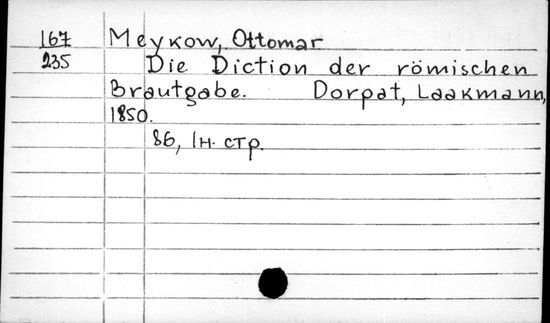 167 Meykow, Ottomar
235 Die Diction der römischen
Brautgabe. Dorpat, Laakmann,
1850.
86, 1н. стр.